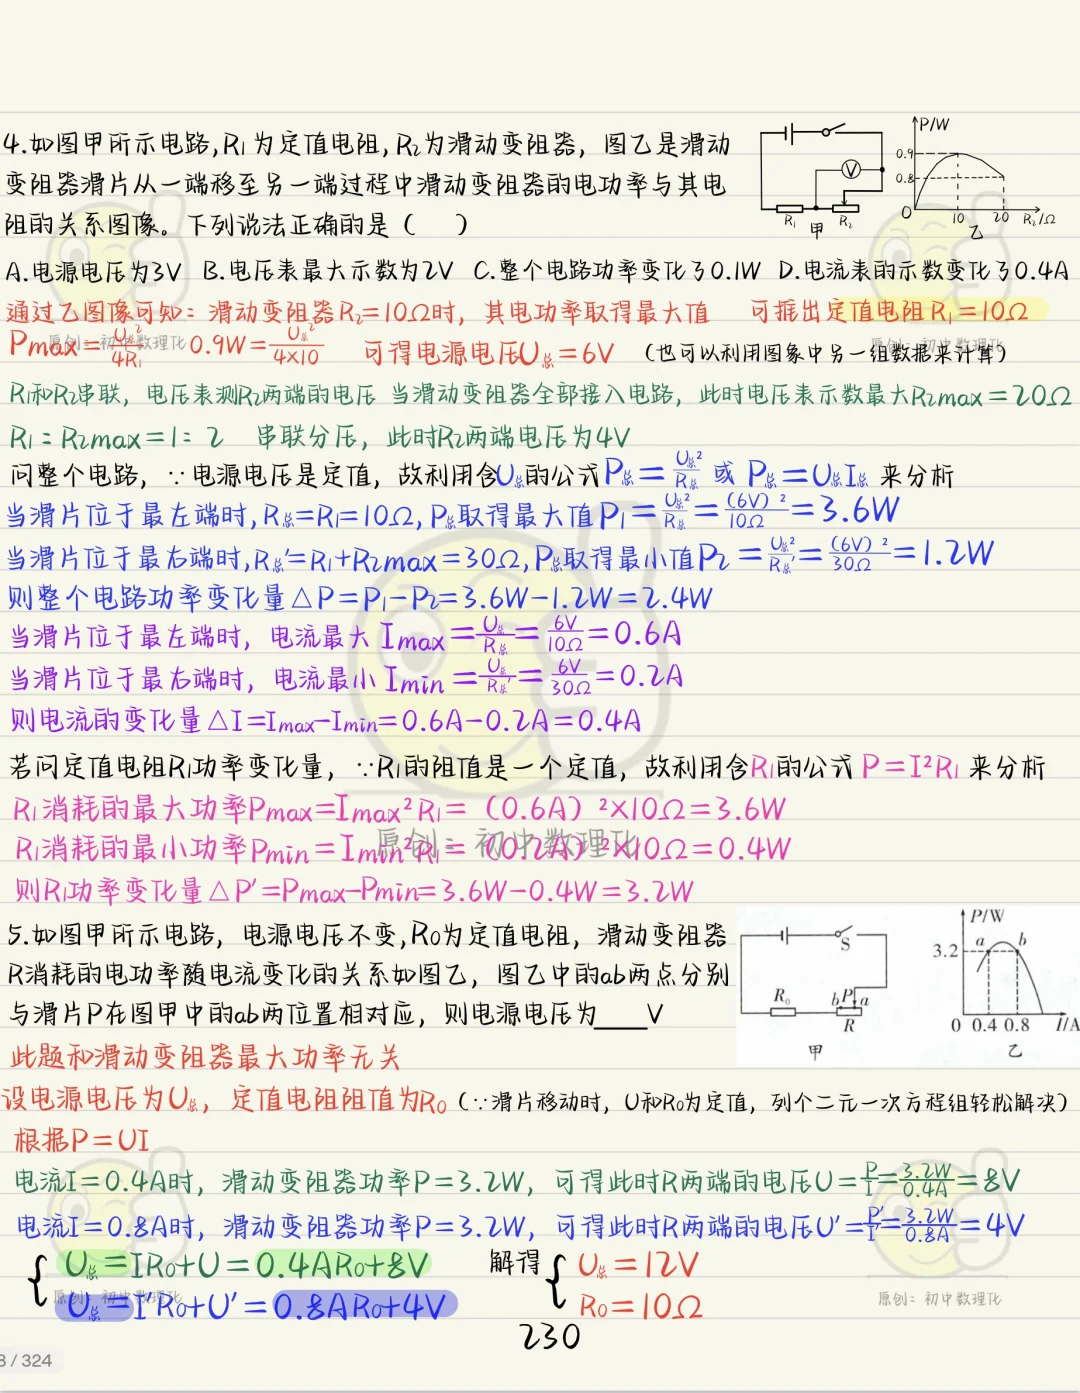 4.如图甲所示电路,R₁为定值电阻,R₂为滑动变阻器，图乙是滑动
变阻器滑片从一端移至另一端过程中滑动变阻器的电功率与其电
阻的关系图像。下列说法正确的是（　）
P/W
0.9
0.8
0
10
20
R₂/Ω
乙
V
R₁
R₂
甲
A.电源电压为3V B.电压表最大示数为2V C.整个电路功率变化了0.1W D.电流表的示数变化了0.4A
通过乙图像可知：滑动变阻器R₂=10Ω时，其电功率取得最大值 可推出定值电阻R₁=10Ω
Pmax=U总²/4R₁ 0.9W=U总²/4×10 可得电源电压U总=6V （也可以利用图象中另一组数据来计算）
R₁和R₂串联，电压表测R₂两端的电压 当滑动变阻器全部接入电路，此时电压表示数最大R₂max=20Ω
R₁：R₂max=1：2 串联分压，此时R₂两端电压为4V
问整个电路，∵电源电压是定值，故利用含U总的公式P总=U总²/R总 或 P总=U总I总 来分析
当滑片位于最左端时,R总=R₁=10Ω,P总取得最大值P₁=U总²/R总=(6V)²/10Ω=3.6W
当滑片位于最右端时,R总′=R₁+R₂max=30Ω,P总取得最小值P₂=U总²/R总′=(6V)²/30Ω=1.2W
则整个电路功率变化量△P=P₁-P₂=3.6W-1.2W=2.4W
当滑片位于最左端时，电流最大Imax=U总/R总=6V/10Ω=0.6A
当滑片位于最右端时，电流最小Imin=U总/R总′=6V/30Ω=0.2A
则电流的变化量△I=Imax-Imin=0.6A-0.2A=0.4A
若问定值电阻R₁功率变化量，∵R₁的阻值是一个定值，故利用含R₁的公式P=I²R₁来分析
R₁消耗的最大功率Pmax=Imax²R₁=（0.6A）²×10Ω=3.6W
R₁消耗的最小功率Pmin=Imin²R₁=（0.2A）²×10Ω=0.4W
则R₁功率变化量△P′=Pmax-Pmin=3.6W-0.4W=3.2W
5.如图甲所示电路，电源电压不变,R₀为定值电阻，滑动变阻器
R消耗的电功率随电流变化的关系如图乙，图乙中的ab两点分别
与滑片P在图甲中的ab两位置相对应，则电源电压为____V
S
R₀
b P a
R
甲
P/W
3.2
a
b
0 0.4 0.8 I/A
乙
此题和滑动变阻器最大功率无关
设电源电压为U总，定值电阻阻值为R₀（∵滑片移动时，U和R₀为定值，列个二元一次方程组轻松解决）
根据P=UI
电流I=0.4A时，滑动变阻器功率P=3.2W，可得此时R两端的电压U=P/I=3.2W/0.4A=8V
电流I=0.8A时，滑动变阻器功率P=3.2W，可得此时R两端的电压U′=P′/I′=3.2W/0.8A=4V
{ U总=IR₀+U=0.4AR₀+8V 解得 { U总=12V
U总=I′R₀+U′=0.8AR₀+4V R₀=10Ω
原创：初中数理化
原创：初中数理化
原创：初中数理化
原创：初中数理化
原创：初中数理化
230
8/324